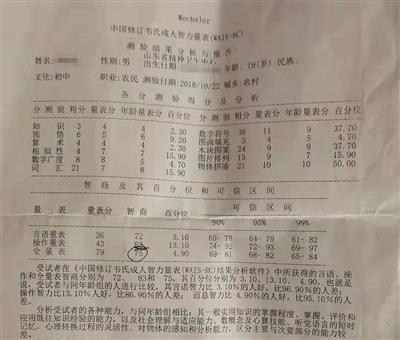 Wechsler
中国修订韦氏成人智力量表(WAIS-RC)
测验结果分析与报告
山东省精神卫生中心
姓名: 性别:男 出生日期: 年龄: 19(岁) 民族:
文化:初中 职业:农民 测验日期:2018/10/22 城乡:农村
各分测验得分及分析
分测验 粗分 量表分 年龄量表分 百分位 分测验 粗分 量表分 年龄量表分 百分位
知识 3 4 4 2.30 数字符号 38 11 9 37.70
领悟 6 5 6 9.20 图画填充 3 4 4
算术 4 4 4 2.30 木块图案 24 9 9 37.70
相似性 4 7 7 15.90 图片排列 13 9 7 15.90
数字广度 8 8 5 物体拼凑 21 10 10 50.00
词汇 21 8 7 15.90
智商及其百分位和可信区间
量表 量表分 智商 百分位 可信区间
90% 95% 99%
言语量表 36 72 3.10 65- 78 64- 79 61- 82
操作量表 43 83 13.10 74- 92 72- 93 69- 97
全量表 79 75 4.90 69- 81 68- 82 65- 84
受试者在《中国修订韦氏成人智力量表(WAIS-RC)结果分析软件》中所获得的言语、操
作和全量表智商分别为 72、 83和 75，其百分位分别为 3.10、13.10、 4.90，也就是
说，受试者与同年龄组的人进行比较，其言语智力比 3.10%的人好，比96.90%的人差；
操作智力比13.10%人好，比86.90%的人差； 而总智力比 4.90%的人好，比95.10%的人
差。
分析受试者各种的能力，与同年龄组相比；其一般实用知识的掌握程度、掌握、评价和
应用既往知识经验的能力、以及社会理解与适应能力、数概念及心算技能、听觉语言的短时
记忆、心理转换过程的灵活性、对物体的感知和分析能力、区分主要与次要部分的能力较